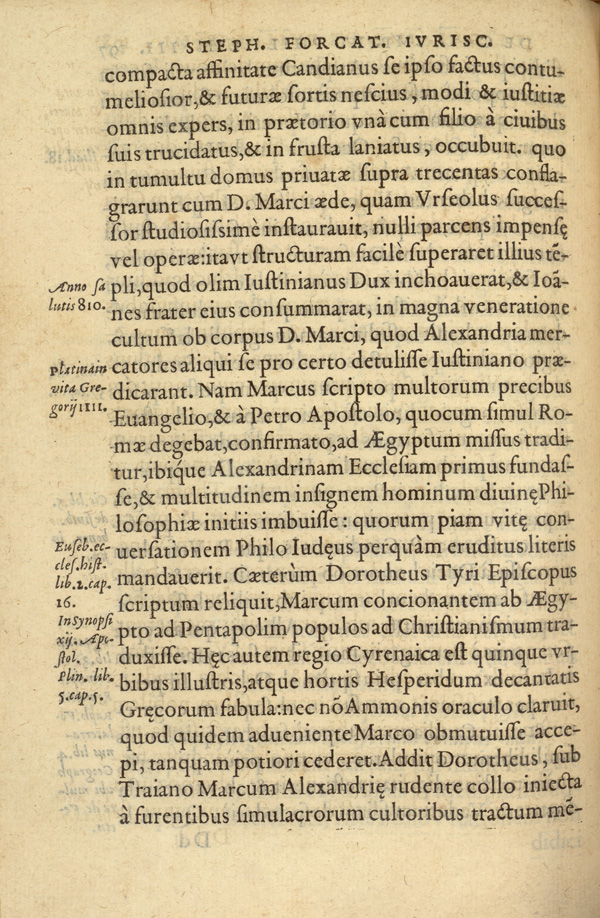 STEPH. FORCAT. IVRISC.
compacta affinitate Candianus se ipso factus contu-
meliosior,& futuræ sortis nescius, modi & iustitiæ
omnis expers, in prætorio vnà cum filio à ciuibus
suis trucidatus,& in frusta laniatus, occubuit. quo
in tumultu domus priuatæ supra trecentas confla-
grarunt cum D. Marci æde, quam Vrseolus succes-
sor studiosissimè instaurauit, nulli parcens impensę
vel operæ:itavt structuram facilè superaret illius tē-
Anno sa
lutis 810.
pli,quod olim Iustinianus Dux inchoauerat,& Ioā-
nes frater eius consummarat, in magna veneratione
cultum ob corpus D. Marci, quod Alexandria mer-
platina in
vita Gre-
gorij IIII.
catores aliqui se pro certo detulisse Iustiniano præ-
dicarant. Nam Marcus scripto multorum precibus
Euangelio,& à Petro Apostolo, quocum simul Ro-
mæ degebat,confirmato,ad Ægyptum missus tradi-
tur,ibique Alexandrinam Ecclesiam primus fundas-
se,& multitudinem insignem hominum diuinę Phi-
losophiæ initiis imbuisse: quorum piam vitę con-
Euseb. ec-
cles. hist.
lib. 2. cap.
16.
uersationem Philo Iudęus perquàm eruditus literis
mandauerit. Cæterùm Dorotheus Tyri Episcopus
scriptum reliquit,Marcum concionantem ab Ægy-
In Synopsi
xij. Apo-
stol.
pto ad Pentapolim populos ad Christianismum tra-
duxisse. Hęc autem regio Cyrenaica est quinque vr-
Plin. lib.
5. cap. 5.
bibus illustris,atque hortis Hesperidum decantatis
Gręcorum fabula:nec nō Ammonis oraculo claruit,
quod quidem adueniente Marco obmutuisse acce-
pi, tanquam potiori cederet. Addit Dorotheus, sub
Traiano Marcum Alexandrię rudente collo iniecta
à furentibus simulacrorum cultoribus tractum mē-